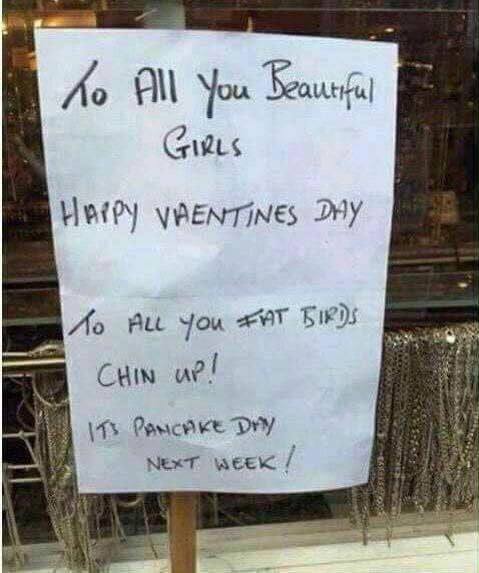 To All You Beautiful
GIRLS
HAPPY VAENTINES DAY
To ALL You FAT BIRDS
CHIN UP!
ITS PANCAKE DAY
NEXT WEEK!